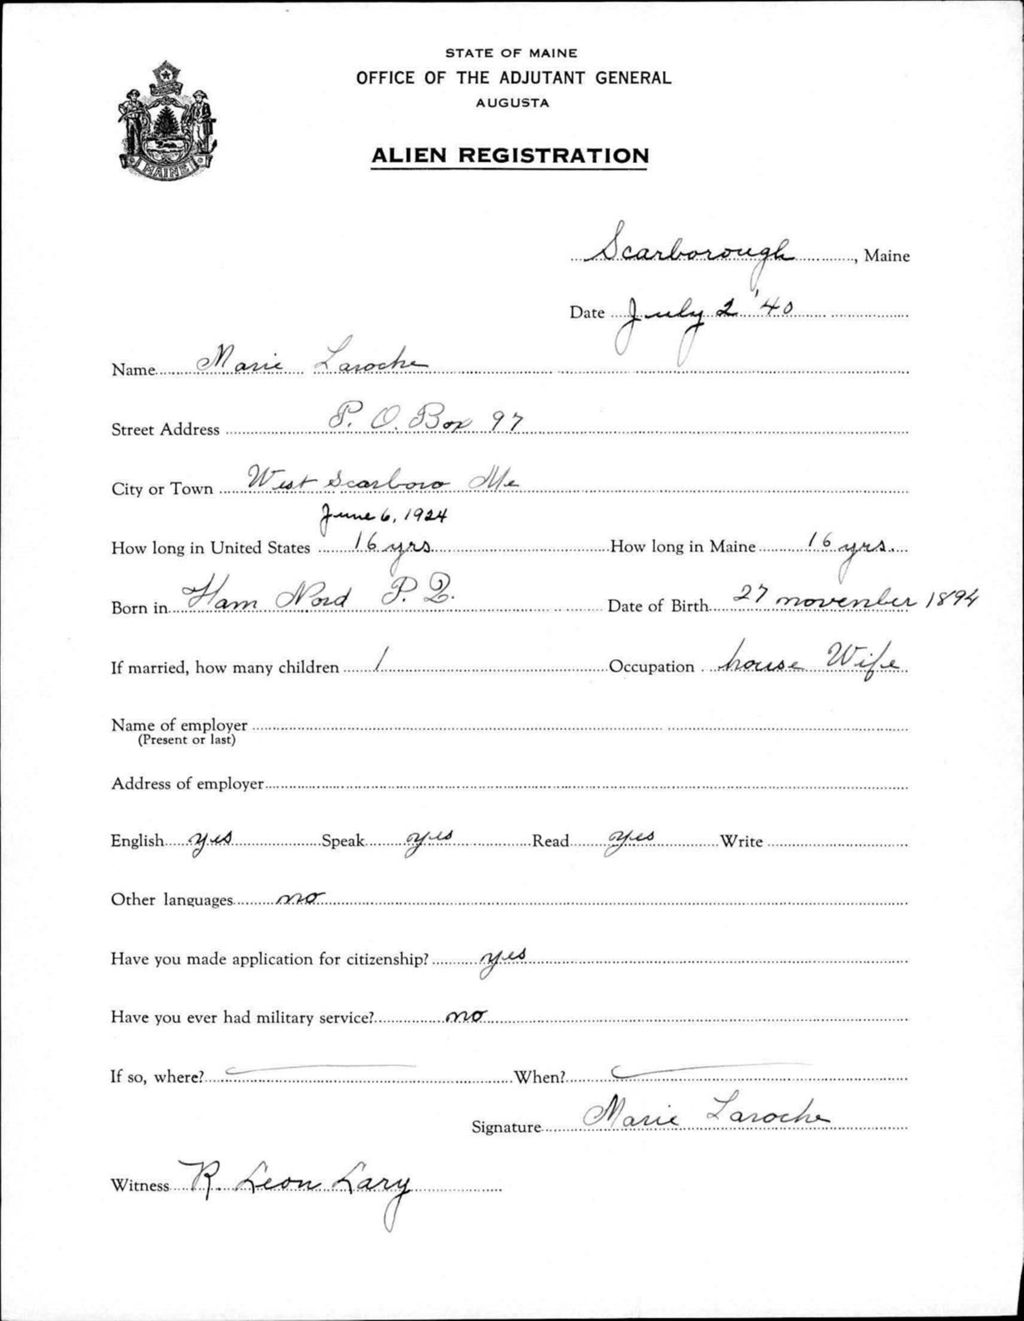 STATE OF MAINE
OFFICE OF THE ADJUTANT GENERAL
AUGUSTA
ALIEN REGISTRATION
MAINE
Scarborough, Maine
Date July 2 '40
Name Marie Laroche
Street Address P. O. Box 97
City or Town West Scarboro Me
June 6, 1924
How long in United States 16 yrs How long in Maine 16 yrs.
Born in Ham Nord P. Q. Date of Birth 27 november 1894
If married, how many children 1 Occupation house Wife
Name of employer
(Present or last)
Address of employer
English yes Speak yes Read yes Write
Other languages no
Have you made application for citizenship? yes
Have you ever had military service? no
If so, where? When?
Signature Marie Laroche
Witness R. Leon Lary